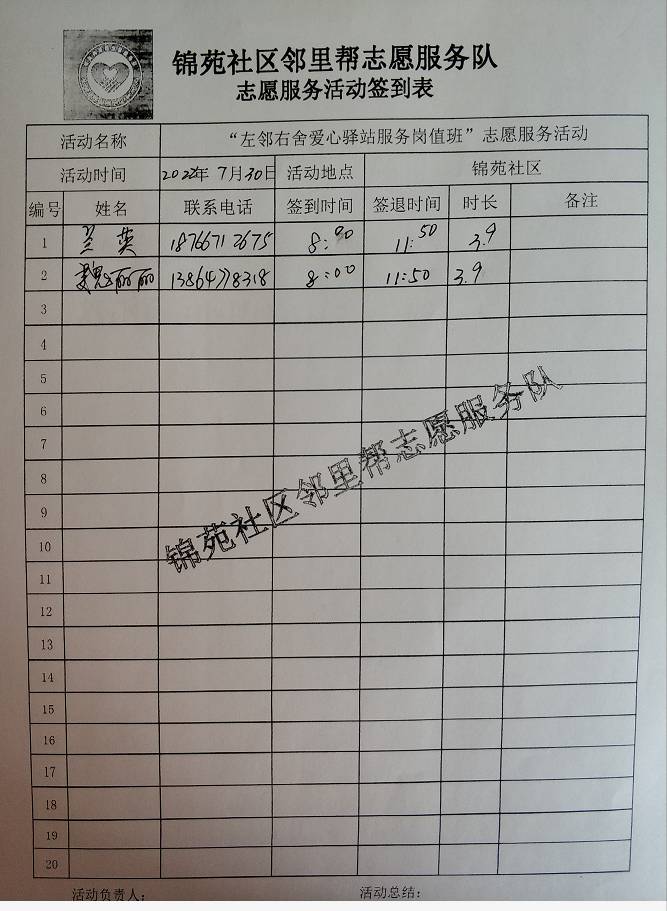 锦苑社区邻里帮志愿服务队
志愿服务活动签到表
活动名称 “左邻右舍爱心驿站服务岗值班”志愿服务活动
活动时间 2022年 7月30日 活动地点 锦苑社区
编号 姓名 联系电话 签到时间 签退时间 时长 备注
1 兰英 18766712675 8:00 11:50 3.9
2 魏丽丽 13864778318 8:00 11:50 3.9
3
4
5
6
7
8
9
10
11
12
13
14
15
16
17
18
19
20
锦苑社区邻里帮志愿服务队
活动负责人： 活动总结：